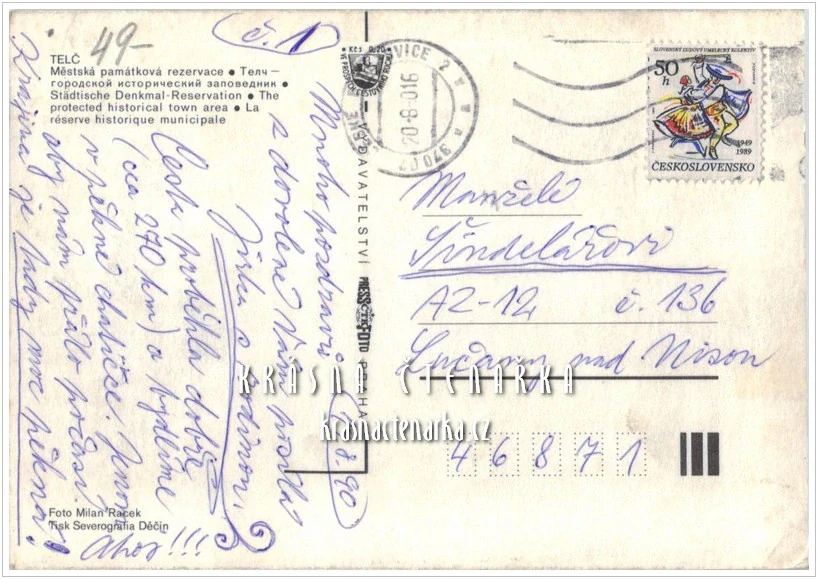 49-
č. 1
TELČ
Městská památková rezervace • Телч —
городской исторический заповедник •
Städtische Denkmal-Reservation • The
protected historical town area • La
réserve historique municipale
Mnoho pozdravů
z dovolené Vám posílá
Jirka s rodinou.
Cesta proběhla dobře
(cca 270 km) a bydlíme
v pěkné chatičce. Jenom
aby nám přálo počasí.
Krajina je tady moc pěkná!
Ahoj!!!
8.90
Foto Milan Racek
Tisk Severografia Děčín
Kčs 0,20
VYDAVATELSTVÍ PRESSFOTO PRAHA
VICE 2
20-8-9016
SLOVENSKÝ ĽUDOVÝ UMELECKÝ KOLEKTÍV
50 h
1949
1989
ČESKOSLOVENSKO
Manželé
Šindelářovi
AZ-12, č. 136
Lučany nad Nisou
46871
KRÁSNÁ ČTENÁŘKA
krasnactenarka.cz